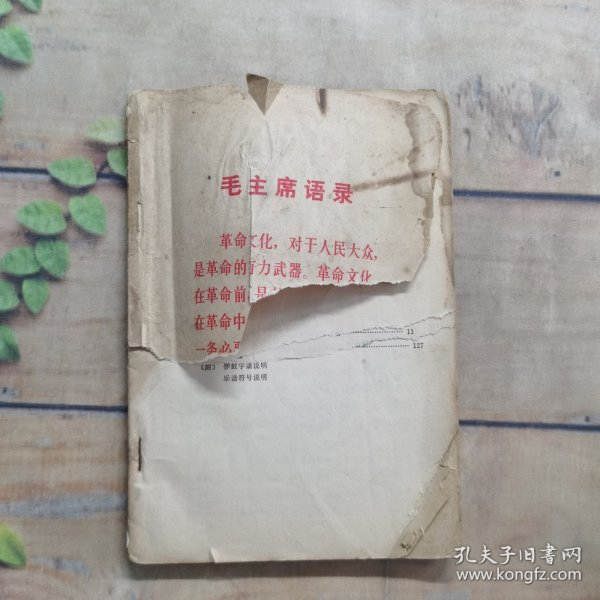 毛主席语录
革命文化，对于人民大众，
是革命的有力武器。革命文化
在革命前，是
在革命中
一条必
11
127
（附） 锣鼓字谱说明
乐谱符号说明
孔夫子旧书网
www.kongfz.com